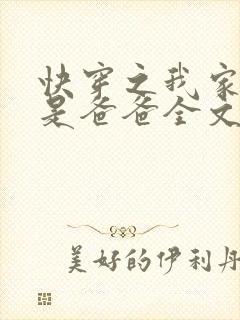 快穿之我家
是爸爸全文
美好的伊利丹